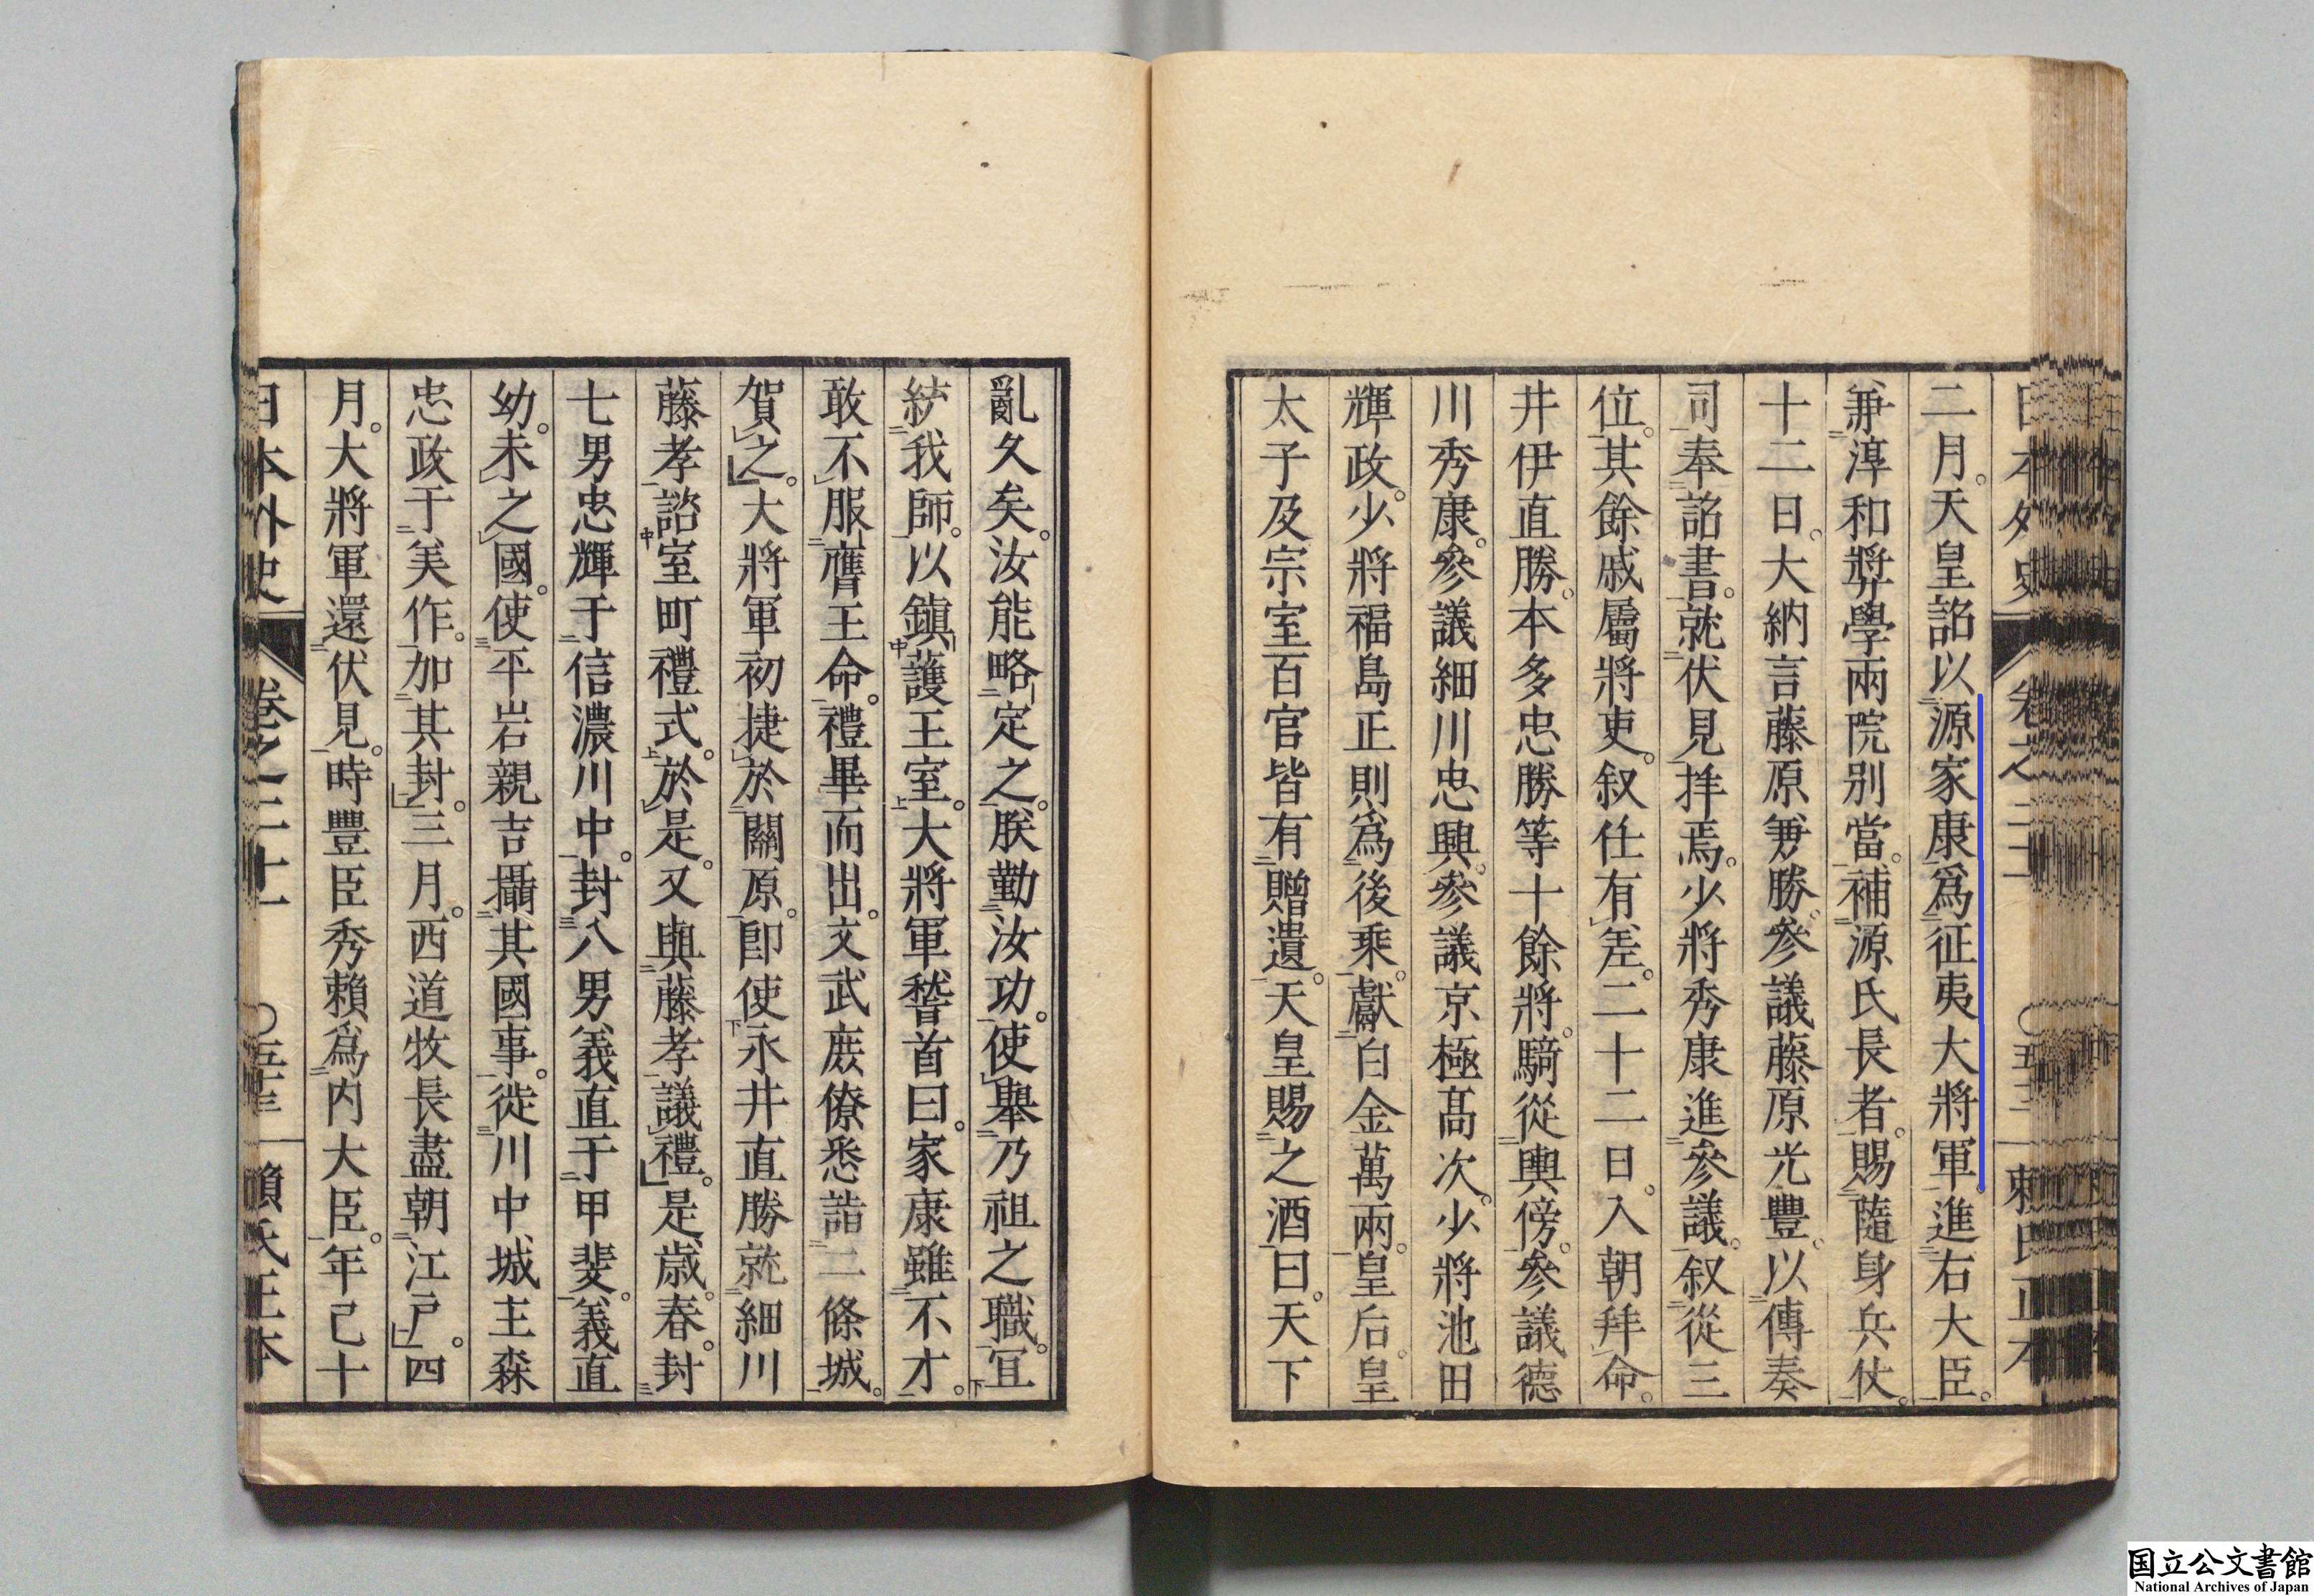 二月。天皇詔以源家康爲征夷大將軍進右大臣。
兼淳和奬學兩院別當。補源氏長者。賜隨身兵仗。
十二日。大納言藤原兼勝。參議藤原光豐。以傳奏
司奉詔書。就伏見拜焉。少將秀康進參議。叙從三
位。其餘戚屬將吏。叙任有差。二十二日。入朝拜命。
井伊直勝。本多忠勝等十餘將。騎從輿傍。參議德
川秀康。參議細川忠興。參議京極高次。少將池田
輝政。少將福島正則爲後乘。獻白金萬兩。皇后。皇
太子及宗室百官皆有贈遺。天皇賜之酒曰。天下
亂久矣。汝能略定之。朕勤汝功。使擧乃祖之職。宜
統我師。以鎭護王室。大將軍稽首曰。家康雖不才。
敢不服膺王命。禮畢而出。文武庶僚悉詣二條城
賀之。大將軍初捷於關原。卽使永井直勝就細川
藤孝諮室町禮式。於是。又與藤孝議禮。是歲春。封
七男忠輝于信濃川中。封八男義直于甲斐。義直
幼。未之國。使平岩親吉攝其國事。徙川中城主森
忠政于美作。加其封。三月。西道牧長盡朝江戸。四
月。大將軍還伏見。時豐臣秀賴爲内大臣。年已十
日本外史 卷之二十一 〇五十三 賴氏正本
国立公文書館
National Archives of Japan